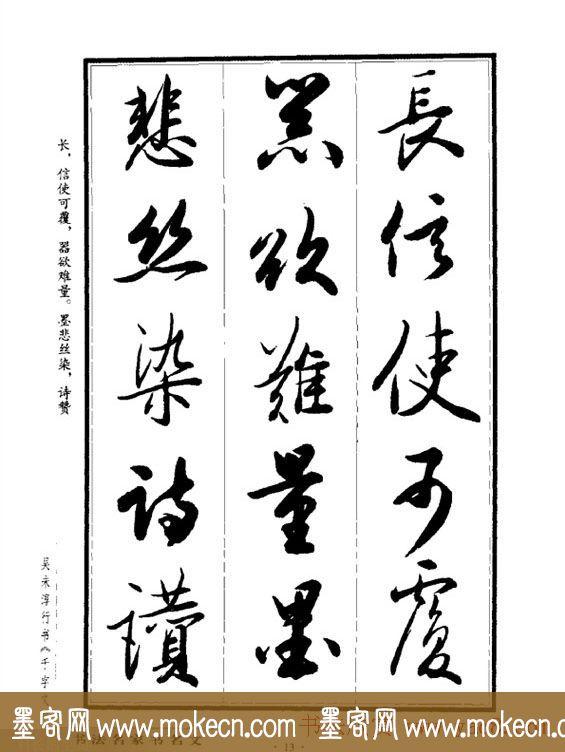 長信使可覆
器欲難量墨
悲絲染詩讚
长，信使可覆，器欲难量。墨悲丝染，诗赞
吴未淳行书《千字文
墨客网 www.mokecn.com 墨客网 www.mokecn.com
书法名家书名文
·13·